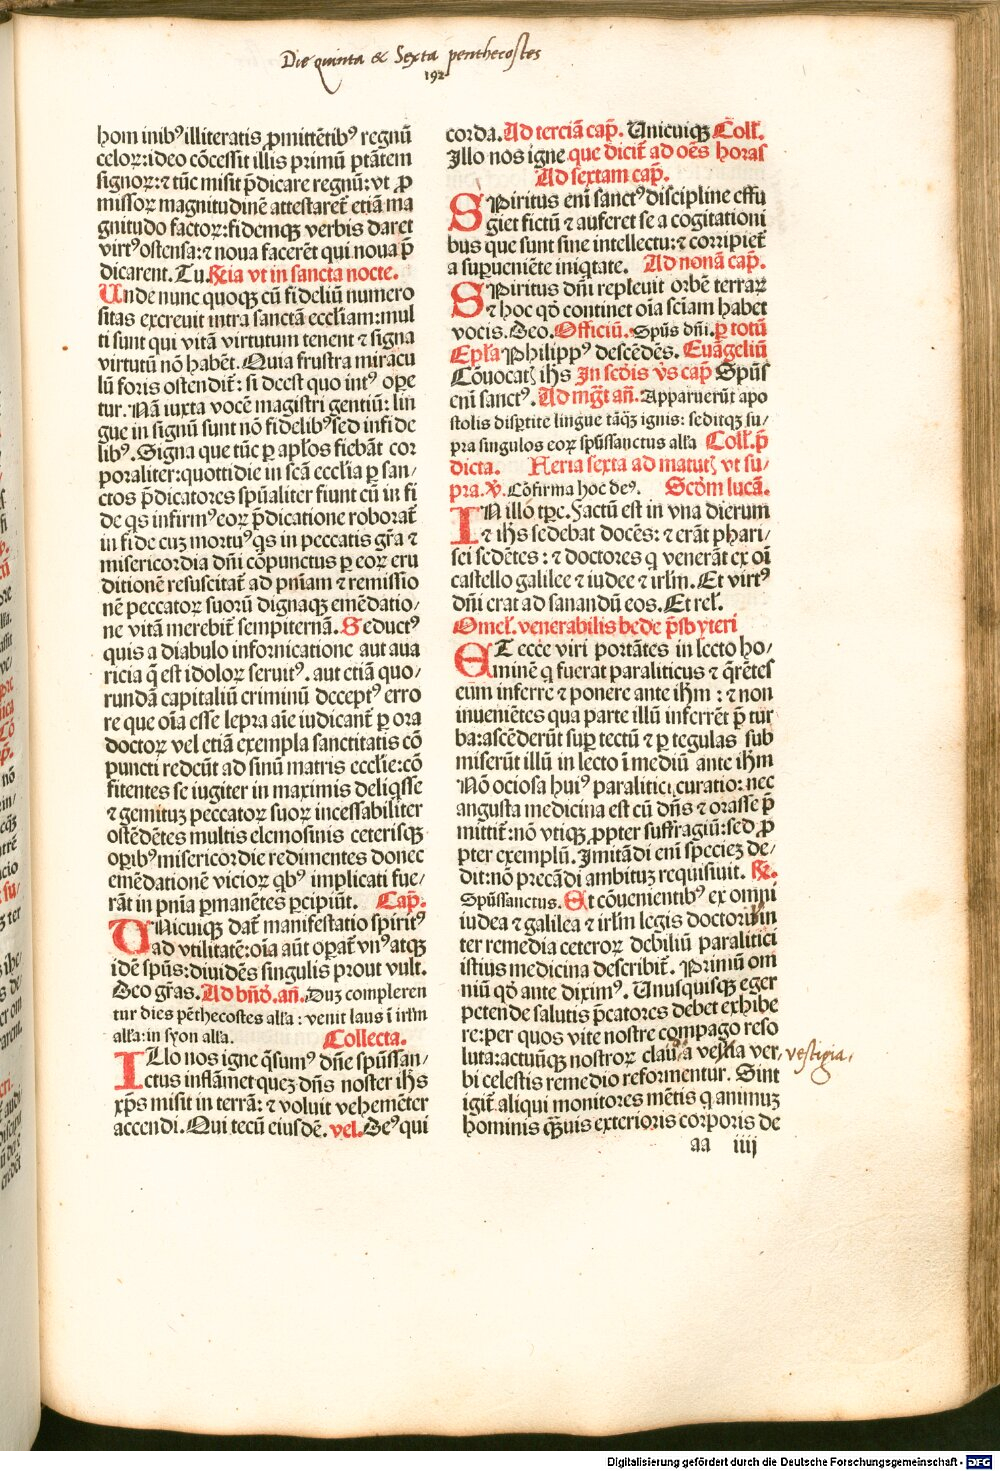 Die quinta & Sexta penthecostes
192
hominibꝰ illiteratis ꝓmittētibꝰ regnū
celoꝝ: ideo cōcessit illis primū ptātem
signoꝝ: ⁊ tūc misit p̄dicare regnū: vt ꝓ
missoꝝ magnitudinē attestaret̄ etiā ma
gnitudo factoꝝ: fidemqꝫ verbis daret
virtꝰ ostensa: ⁊ noua facerēt qui noua p̄
dicarent. Tu. Feria vt in sancta nocte.
Unde nunc quoqꝫ cū fideliū numero
sitas excreuit intra sanctā eccl̄iam: mul
ti sunt qui vitā virtutum tenent ⁊ signa
virtutū nō habēt. Quia frustra miracu
lū foris ostendit̄: si deest quo intꝰ oꝑe
tur. Nā iuxta vocē magistri gentiū: lin
gue in signū sunt nō fidelibꝰ sed infide
libꝰ. Signa que tūc ꝑ apl̄os fiebāt cor
poraliter: quottidie in scā eccl̄ia ꝑ san/
ctos p̄dicatores spūaliter fiunt cū in fi
de qs infirmꝰ eoꝝ p̄dicatione roborat̄
in fide cuꝫ mortuꝰ qs in peccatis gr̄a ⁊
misericordia dn̄i cōpunctus ꝑ eoꝝ eru
ditionē resuscitat̄ ad pn̄iam ⁊ remissio
nē peccatoꝝ suorū dignaqꝫ emēdatio/
ne vitā merebit̄ sempiternā. Seductꝰ
quis a diabulo in fornicatione aut aua
ricia q̄ est idoloꝝ seruitꝰ. aut etiā quo/
rundā capitaliū criminū deceptꝰ erro
re que oīa esse lepra aīe iudicant̄ ꝑ ora
doctoꝝ vel etiā exempla sanctitatis cō
puncti redeūt ad sinū matris eccl̄ie: cō
fitentes se iugiter in maximis deliqsse
⁊ gemituꝫ peccatoꝝ suoꝝ incessabiliter
ostēdētes multis elemosinis ceterisqꝫ
oꝑibꝰ misericordie redimentes donec
emēdationē vicioꝝ qbꝰ implicati fue/
rāt in pn̄ia ꝑmanētes ꝑcipiūt. Cap̄.
UNicuiqꝫ dat̄ manifestatio spiritꝰ
ad vtilitatē: oīa aūt oꝑat̄ vnꝰ atqꝫ
idē spūs: diuidēs singulis prout vult.
Deo gr̄as. Ad bn̄d̄. añ. Duꝫ compleren
tur dies pēthecostes all̄a: venit laus ī irl̄m
all̄a: in syon all̄a. Collecta.
ILlo nos igne q̄sumꝰ dn̄e spūssan/
ctus inflāmet queꝫ dn̄s noster ih̄s
xp̄s misit in terrā: ⁊ voluit vehemēter
accendi. Qui tecū eiusdē. vel. Deꝰ qui
corda. Ad terciā cap̄. Unicuiqꝫ Coll̄.
Illo nos igne que dicit̄ ad oēs horas
Ad sextam cap̄.
SPiritus enī sanctꝰ discipline effu
giet fictū ⁊ auferet se a cogitationi
bus que sunt sine intellectu: ⁊ corripiet̄
a suꝑueniēte iniqtate. Ad nonā cap̄.
SPiritus dn̄i repleuit orbē terraꝝ
⁊ hoc qd̄ continet oīa sciam habet
vocis. Deo. Officiū. Spūs dn̄i. ꝑ totū
Epl̄a Philippꝰ descēdēs. Euāgeliū
Cōuocatꝭ ih̄s In scd̄is v̄s cap̄ Spūs
enī sanctꝰ. Ad mgt̄ añ. Apparuerūt apo
stolis disꝑtite lingue tāqꝫ ignis: seditqꝫ su/
pra singulos eoꝝ spūssanctus all̄a Coll̄. p̄
dicta. Feria sexta ad matutꝭ vt su/
pra. ℣. Cōfirma hoc deꝰ. Scd̄m lucā.
IN illo tp̄e. Factū est in vna dierum
⁊ ih̄s sedebat docēs: ⁊ erāt phari/
sei sedētes: ⁊ doctores q venerāt ex oī
castello galilee ⁊ iudee ⁊ irl̄m. Et virtꝰ
dn̄i erat ad sanandū eos. Et rel̄.
Omel̄. venerabilis bede p̄sbyteri
ET ecce viri portātes in lecto ho/
minē q fuerat paraliticus ⁊ q̄rētes
eum inferre ⁊ ponere ante ih̄m: ⁊ non
inueniētes qua parte illū inferrēt p̄ tur
ba: ascēderūt suꝑ tectū ⁊ ꝑ tegulas sub
miserūt illū in lecto ī mediū ante ih̄m
Nō ociosa huiꝰ paralitici curatio: nec
angusta medicina est cū dn̄s ⁊ orasse p̄
mittit̄: nō vtiqꝫ ꝓpter suffragiū: sed ꝓ
pter exemplū. Imitādi enī specieꝫ de/
dit: nō precādi ambituꝫ requisiuit. ℟.
Spūssanctus. Et cōuenientibꝰ ex omni
iudea ⁊ galilea ⁊ irl̄m legis doctoribꝰ in
ter remedia ceteroꝝ debiliū paralitici
istius medicina describit̄. Primū om
niū qd̄ ante diximꝰ. Unusquisqꝫ eger
petende salutis p̄catores debet exhibe
re: per quos vite nostre compago reso
luta: actuūqꝫ nostroꝝ clauda vestigia ver/
vestigia.
bi celestis remedio reformentur. Sint
igit̄ aliqui monitores mētis q animuꝫ
hominis qꝫuis exterioris corporis de
aa iiij
Digitalisierung gefördert durch die Deutsche Forschungsgemeinschaft - DFG